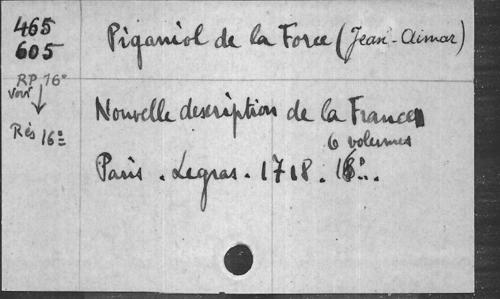 465
605
RP 16°
voir
Rés 16°
Piganiol de la Force (Jean-Aimar)
Nouvelle description de la France
6 volumes
Paris. Legras. 1718.